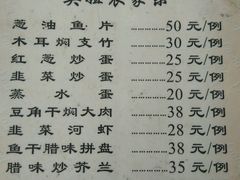 农家菜
葱油鱼片……………50元/例
木耳焖支竹…………30元/例
红葱炒蛋……………25元/例
韭菜炒蛋……………25元/例
蒸水蛋………………20元/例
豆角干焖大肉………38元/例
韭菜河虾……………28元/例
鱼干腊味拼盘………38元/例
腊味炒芥兰…………35元/例